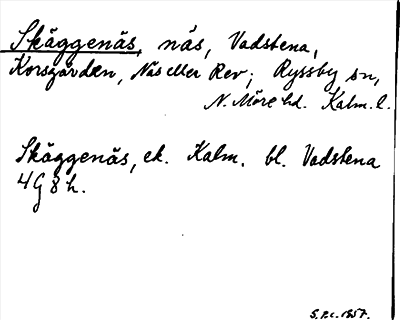 Skäggenäs, näs, Vadstena,
Korsgården, Näs eller Rev; Ryssby sn,
N. Möre hd. Kalm. l.
Skäggenäs, ek. Kalm. bl. Vadstena
4G8h.